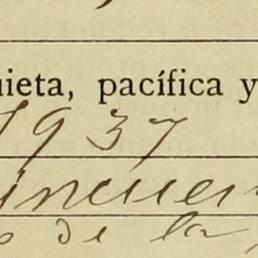 uieta, pacífica y
1937
incuen
s de la